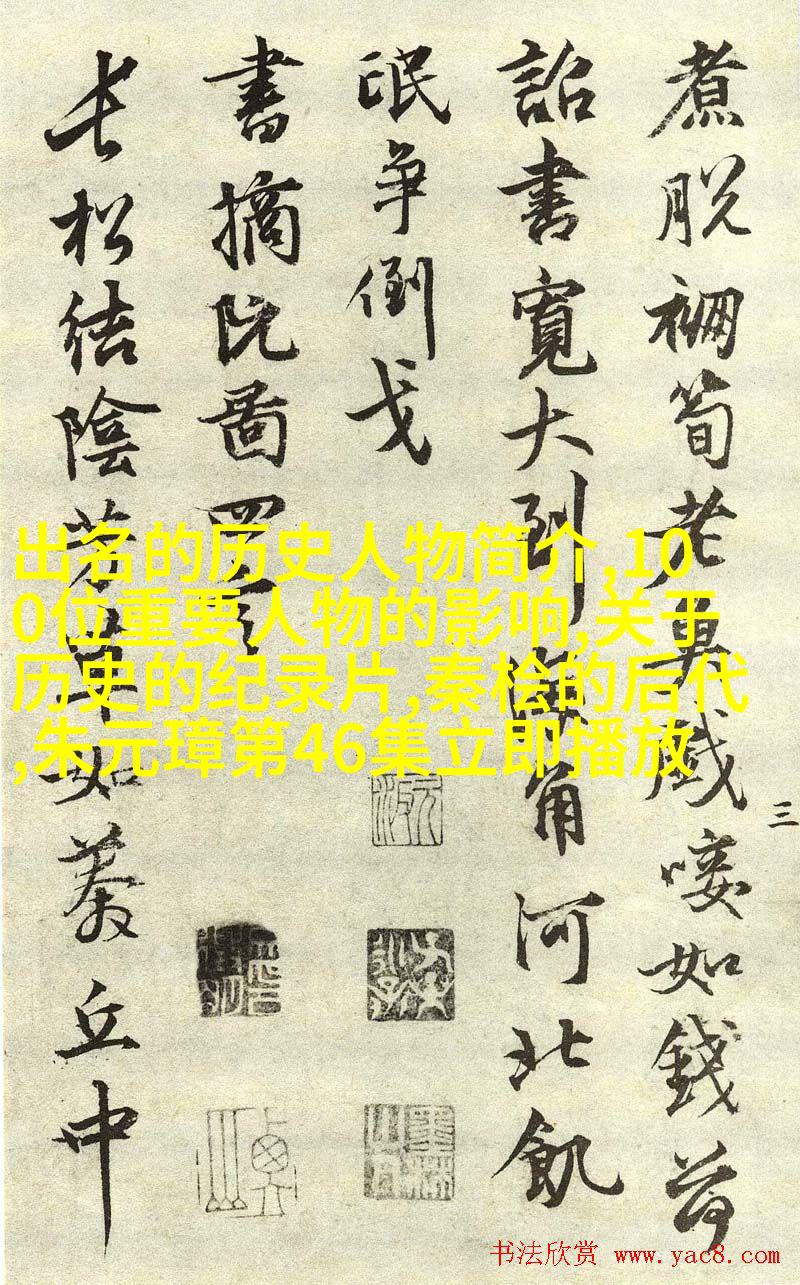 煮脫筍老如錢荷
詔書寬大到海角河北飢
氓爭倒戈
書摘阮圖
長松結陰如丘中
三
出名的历史人物简介,10
0位重要人物的影响,关于
历史的纪录片,秦桧的后代
,朱元璋第46集立即播放
书法欣赏 www.yac8.com